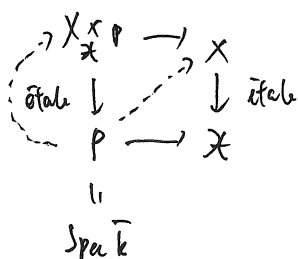 X × P → X
𝒳
étale ↓ ↓ étale
P → 𝒳
||
Spec k̄